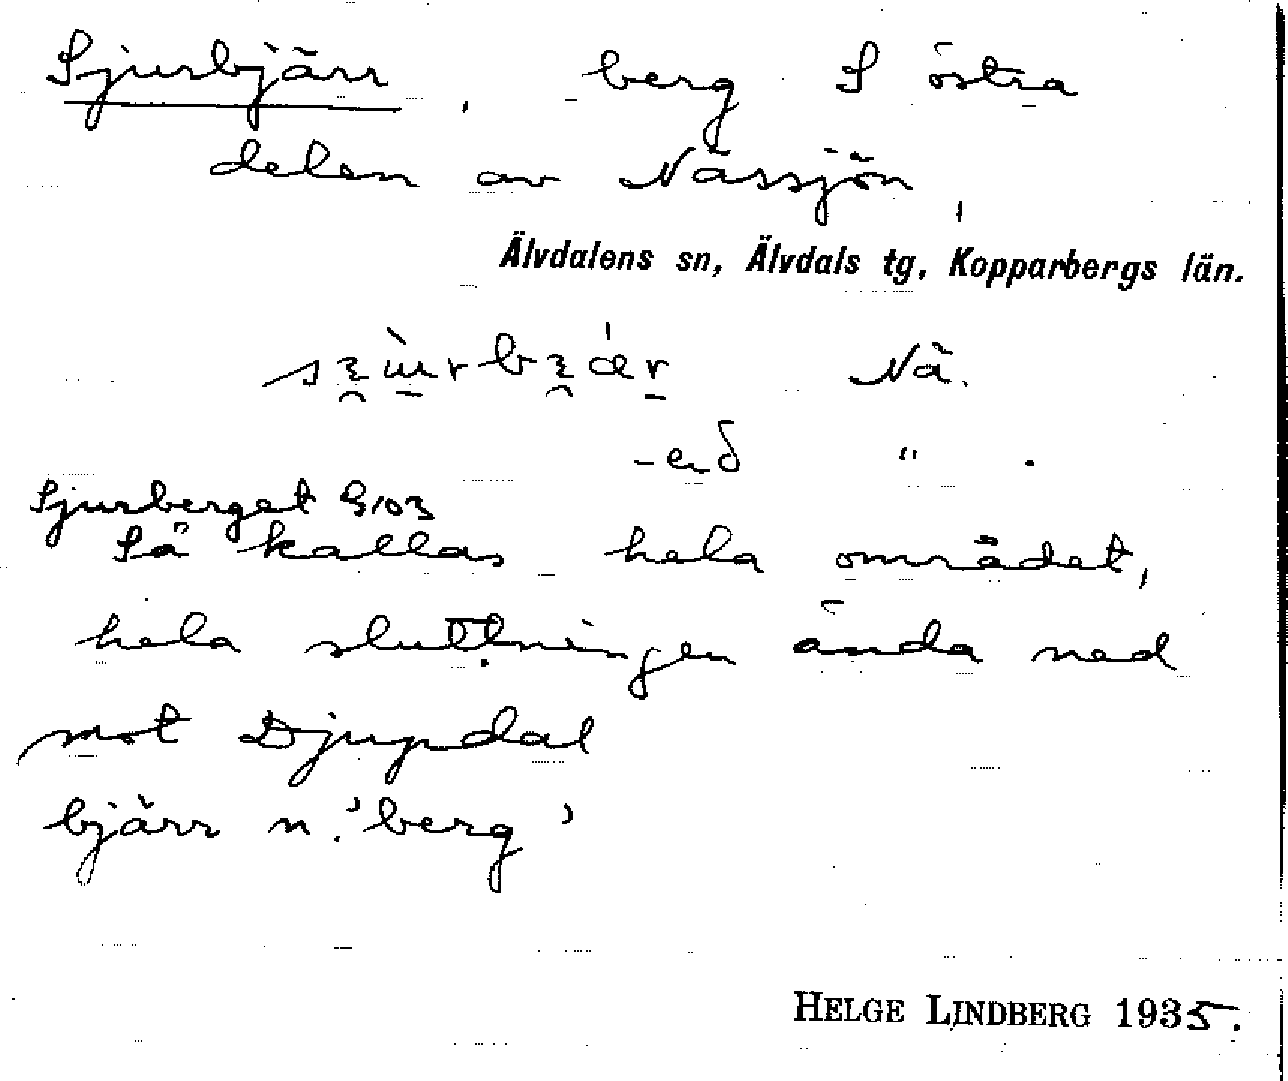 Sjurbjärr, berg S östra
delen av Nässjön,
Älvdalens sn, Älvdals tg, Kopparbergs län.
Nä.
" .
Sjurberget G103
Så kallas hela området,
hela sluttningen ända ned
mot Djupdal
bjärr n. 'berg'
HELGE LINDBERG 1935.